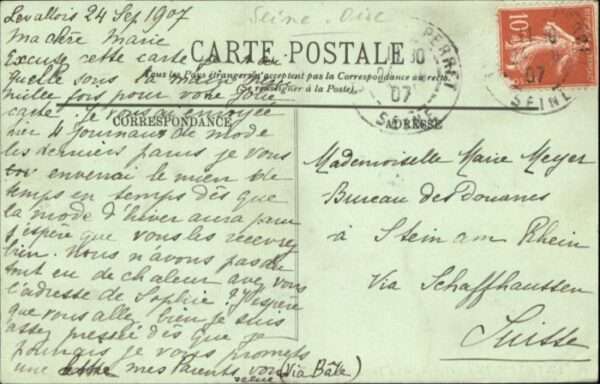 Levallois 24 Sep 1907
Seine-Oise
Ma chère Marie
Excuse cette carte
CARTE POSTALE
Tous les Pays étrangers n'acceptent pas la Correspondance au recto.
(Se renseigner à la Poste).
mille fois pour votre jolie
carte. Je vous ai envoyée
CORRESPONDANCE
hier 4 journaux de mode
les derniers parus je vous
enverrai le mien de
temps en temps dès que
la mode d'hiver aura paru
j'espère que vous les recevrez
bien. Nous n'avons pas
tout eu de chaleur avez vous
l'adresse de Sophie? J'espère
que vous allez bien je suis
assez pressée dès que je
pourrais je vous promets
une mes Parents vous
(Via Bâle)
ADRESSE
Mademoiselle Marie Meyer
Bureau des Douanes
à Stein am Rhein
Via Schaffhaussen
Suisse
10
PERRET
07
SEINE
07
SEINE